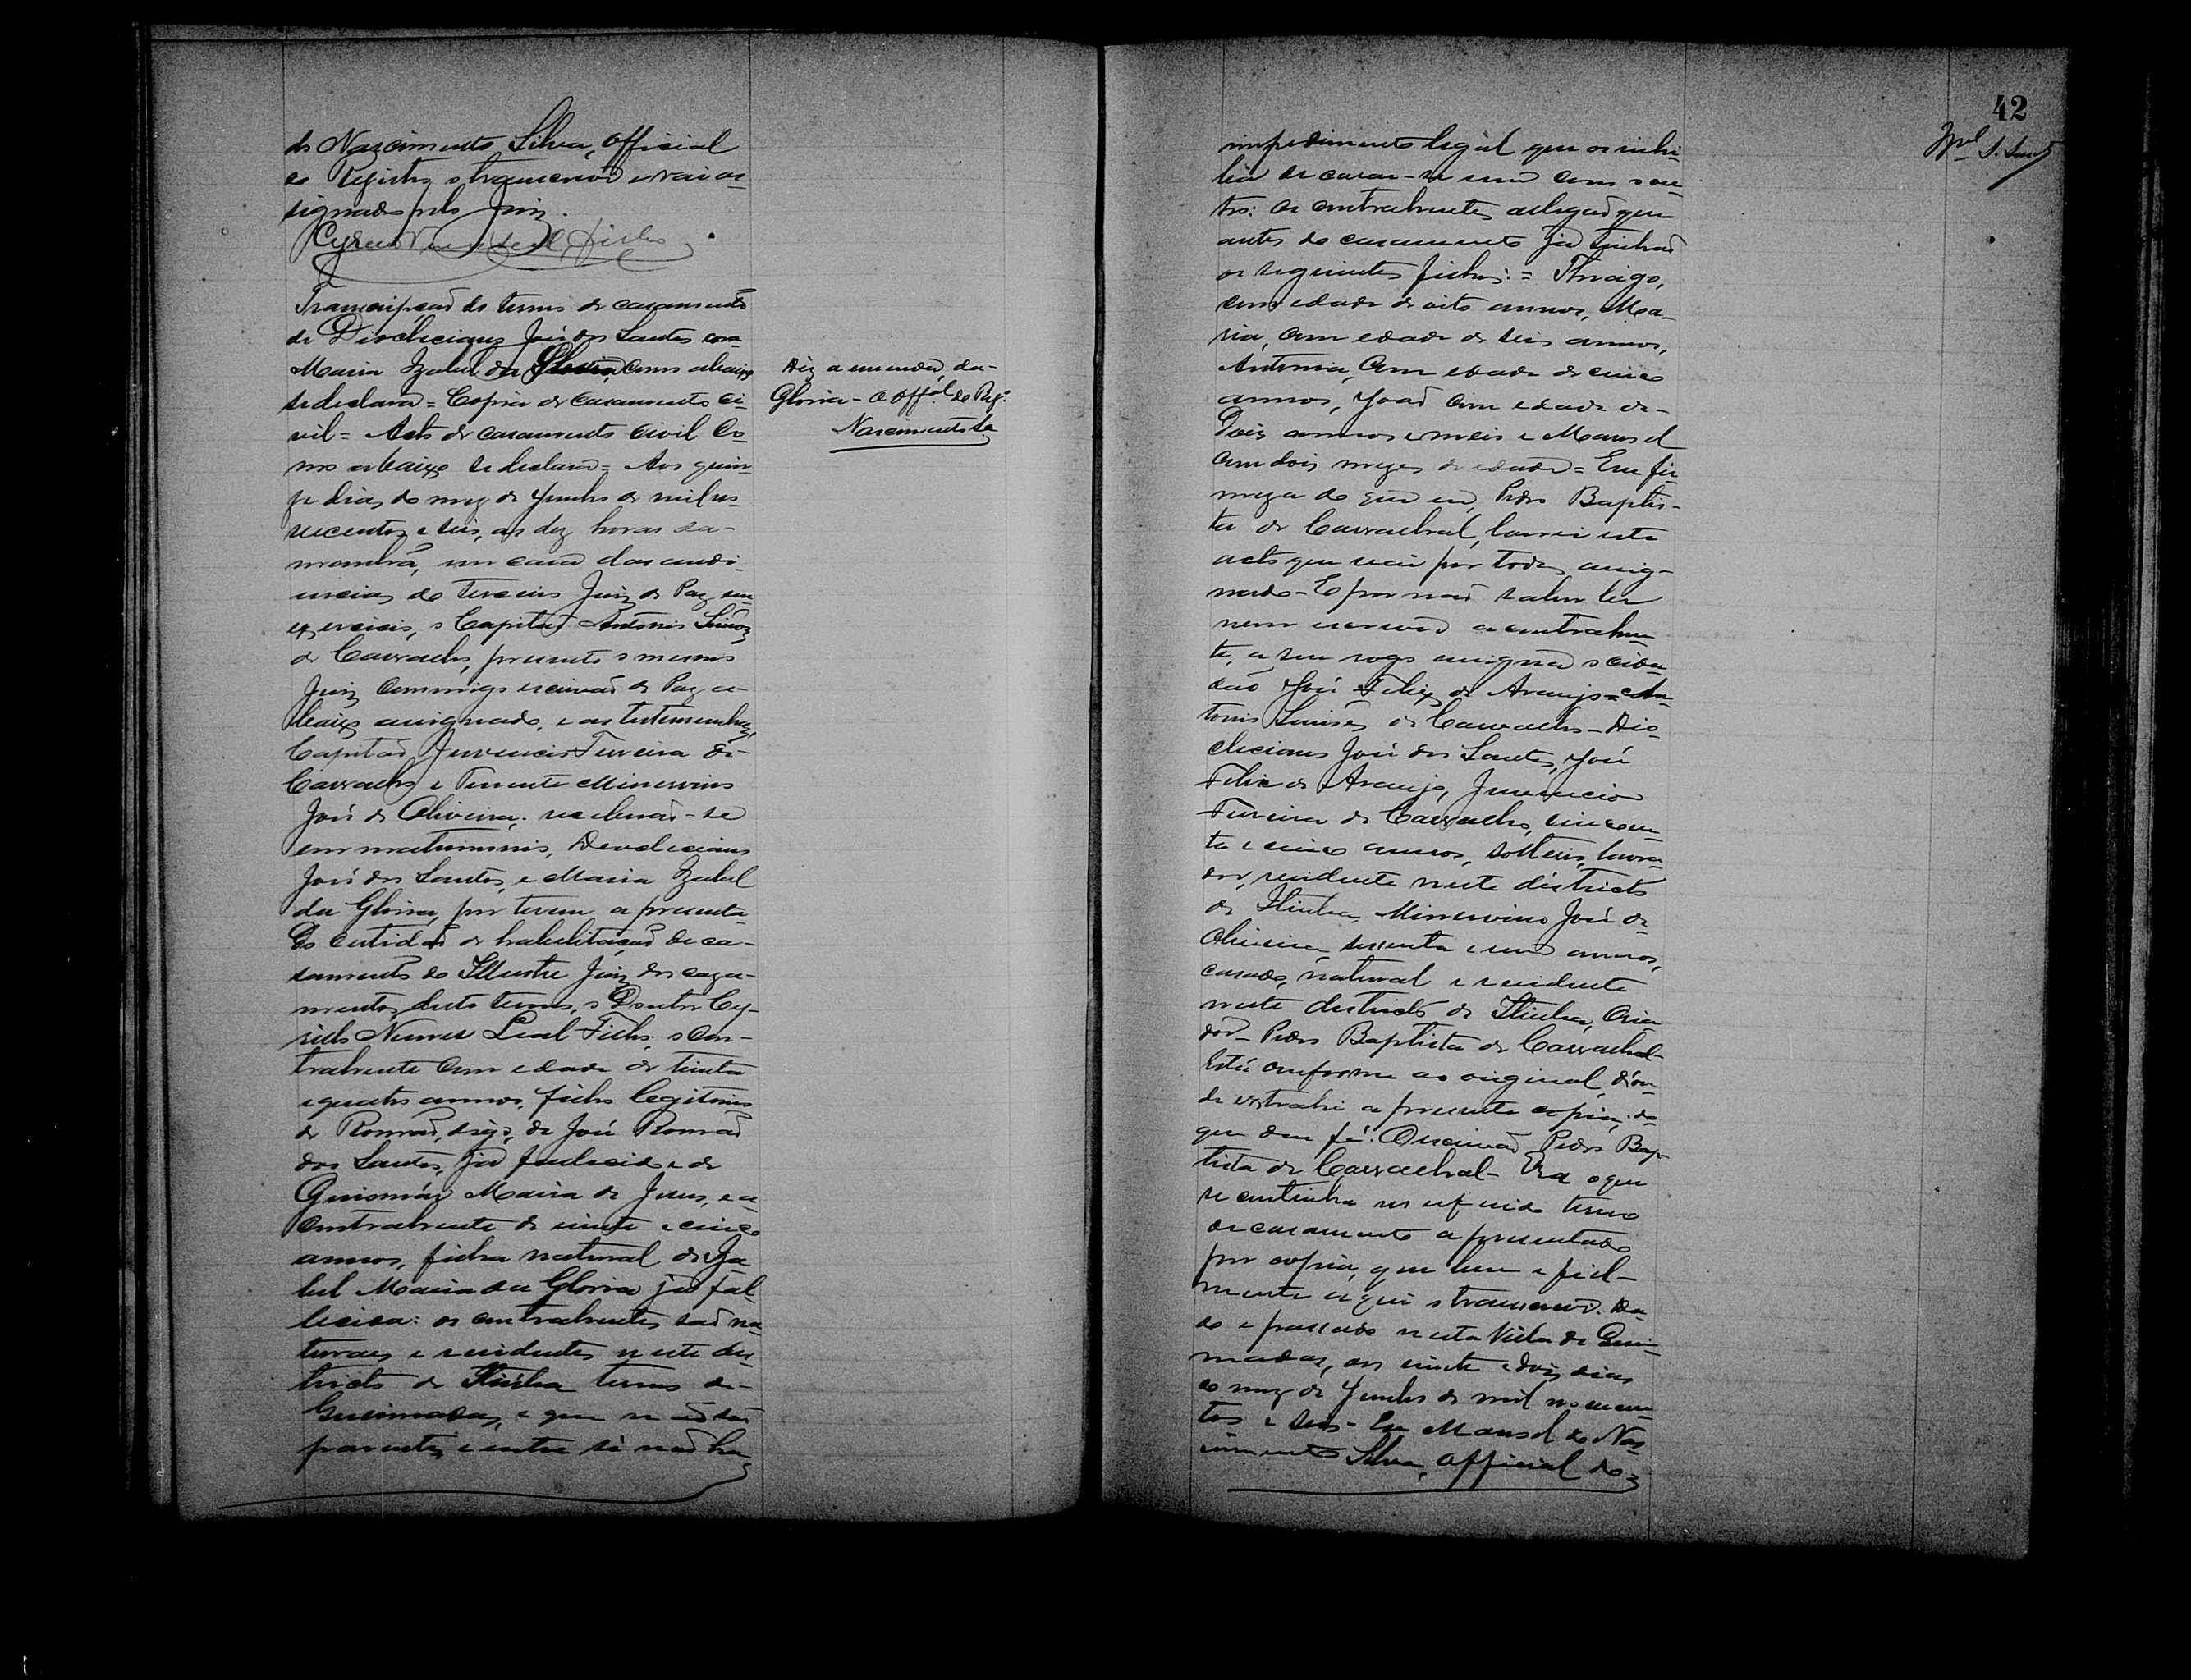 do Nascimento Silva, Official
do Registro o transcrevo e vai as-
signado pelo Juiz.
Cyrillo Nunes Leal Filho
Transcripção do termo de casamento
de Diocleciano José dos Santos com
Maria Izabel da Gloria, como abaixo
se declara = Copia de casamento ci-
vil = Acto de casamento civil co-
mo abaixo se declara = Aos quin-
ze dias do mez de Junho de mil no-
vecentos e seis, as dez horas da-
manhã, em casa das audi-
encias do terceiro Juiz de Paz em
exercicio, o Capitão Antonio Simões
de Carvalho, presente o mesmo
Juiz commigo escrivão de Paz a-
baixo assignado, e as testemunhas,
Capitão Juvencio Ferreira de
Carvalho e Tenente Minervino
José de Oliveira; receberão-se
em matrimonio, Deocleciano
José dos Santos, e Maria Izabel
da Gloria, por terem apresenta-
do certidão de habilitação de ca-
samento do Illustre Juiz dos casa-
mentos, deste termo, o Doutor Cy-
rillo Nunes Leal Filho; o con-
trahente com edade de trinta
e quatro annos, filho legitimo
de Romão, digo, de José Romão
dos Santos, já fallecido e de
Guiomár Maria de Jesus, e a
contrahente de vinte e cinco
annos, filha natural de Iza
bel Maria da Gloria já fal
lecida: os contrahentes são na-
turaes e residentes neste dis-
tricto de Itiuba termo de-
Queimadas, e que não são
parentes, e entre si não ha
Diz a emenda, da-
Gloria - O Offal do Rego
Nascimento Sa
42
impedimento legal que os inhi-
bia de casar-se um com o ou-
tro: os contrahentes allegão que
antes do casamento já tinhão
os seguintes filhos: = Thiago,
com edade de oito annos, Ma-
ria, com edade de seis annos,
Antonia, com edade de cinco
annos, João com edade de-
dois annos e meio e Manoel
com dois mezes de edade = Em fir-
meza do que eu, Pedro Baptis-
ta de Carvalhal, lavrei este
acto que vai por todos assig-
nado - E por não saber ler
nem escrever a contrahen-
te, a seu rogo assigna o cida-
dão José Felix de Araujo = An-
tonio Simões de Carvalho - Dio-
cleciano José dos Santos, José
Felix de Araujo, Juvencio
Ferreira de Carvalho, cincoen-
ta e cinco annos, solteiro, lavra-
dor, residente neste districto
de Itiuba, Minervino José de
Oliveira, sessenta e um annos,
casado, natural e residente
neste districto de Itiuba, cria-
dor - Pedro Baptista de Carvalhal-
Está conforme ao original, d'on-
de extrahi a presente copia; do
que dou fé. O escrivão Pedro Bap-
tista de Carvalhal - Era o que
se continha no referido termo
de casamento apresentado
por copia, que bem e fiel-
mente aqui o transcrevo. Da-
do e passado nesta Villa de Quei-
madas, aos vinte e dois dias
do mez de Junho de mil novecen-
tos e seis - Eu Manoel do Nas-
cimento Silva, Official do